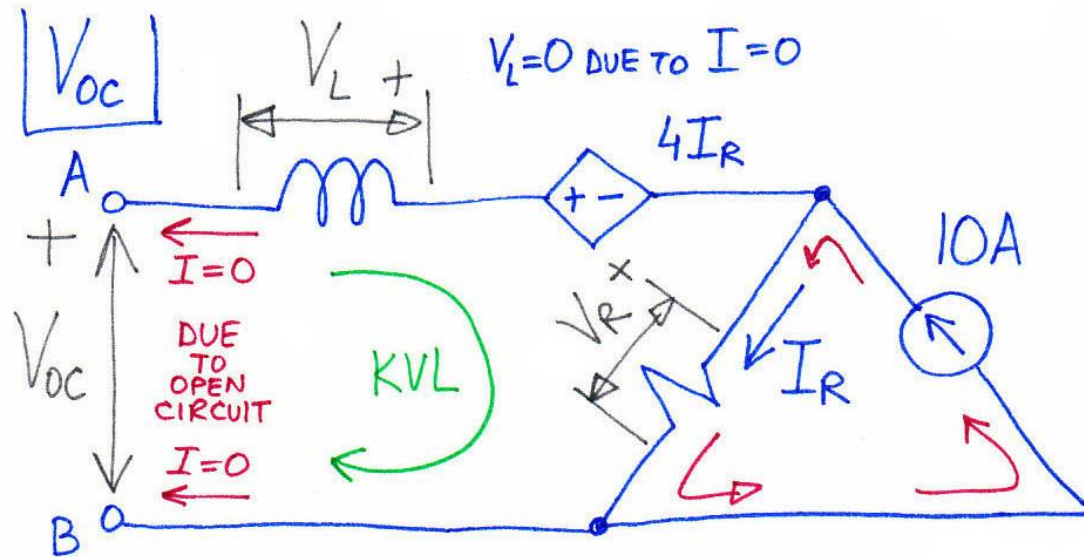 V_OC
V_L +
V_L=0 DUE TO I=0
4I_R
A
+ -
10A
+
I=0
V_OC
DUE
TO
OPEN
CIRCUIT
KVL
+
V_R
I_R
I=0
B